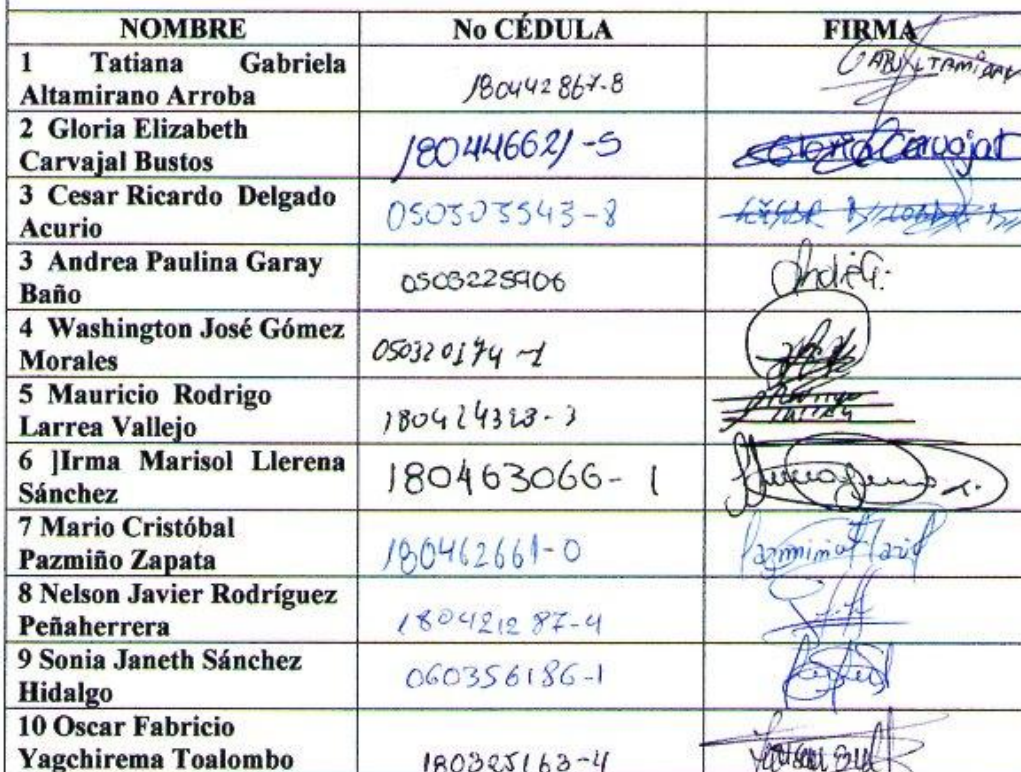 NOMBRE No CÉDULA FIRMA
1 Tatiana Gabriela
Altamirano Arroba 180442867-8
2 Gloria Elizabeth
Carvajal Bustos 180446621-5 Gloria Carvajal
3 Cesar Ricardo Delgado
Acurio 050303543-8
3 Andrea Paulina Garay
Baño 0503225906
4 Washington José Gómez
Morales 050320174-1
5 Mauricio Rodrigo
Larrea Vallejo
6 ]Irma Marisol Llerena
Sánchez 180463066-1
7 Mario Cristóbal
Pazmiño Zapata 180462661-0
8 Nelson Javier Rodríguez
Peñaherrera 180421287-4
9 Sonia Janeth Sánchez
Hidalgo 060356186-1
10 Oscar Fabricio
Yagchirema Toalombo 180325163-4